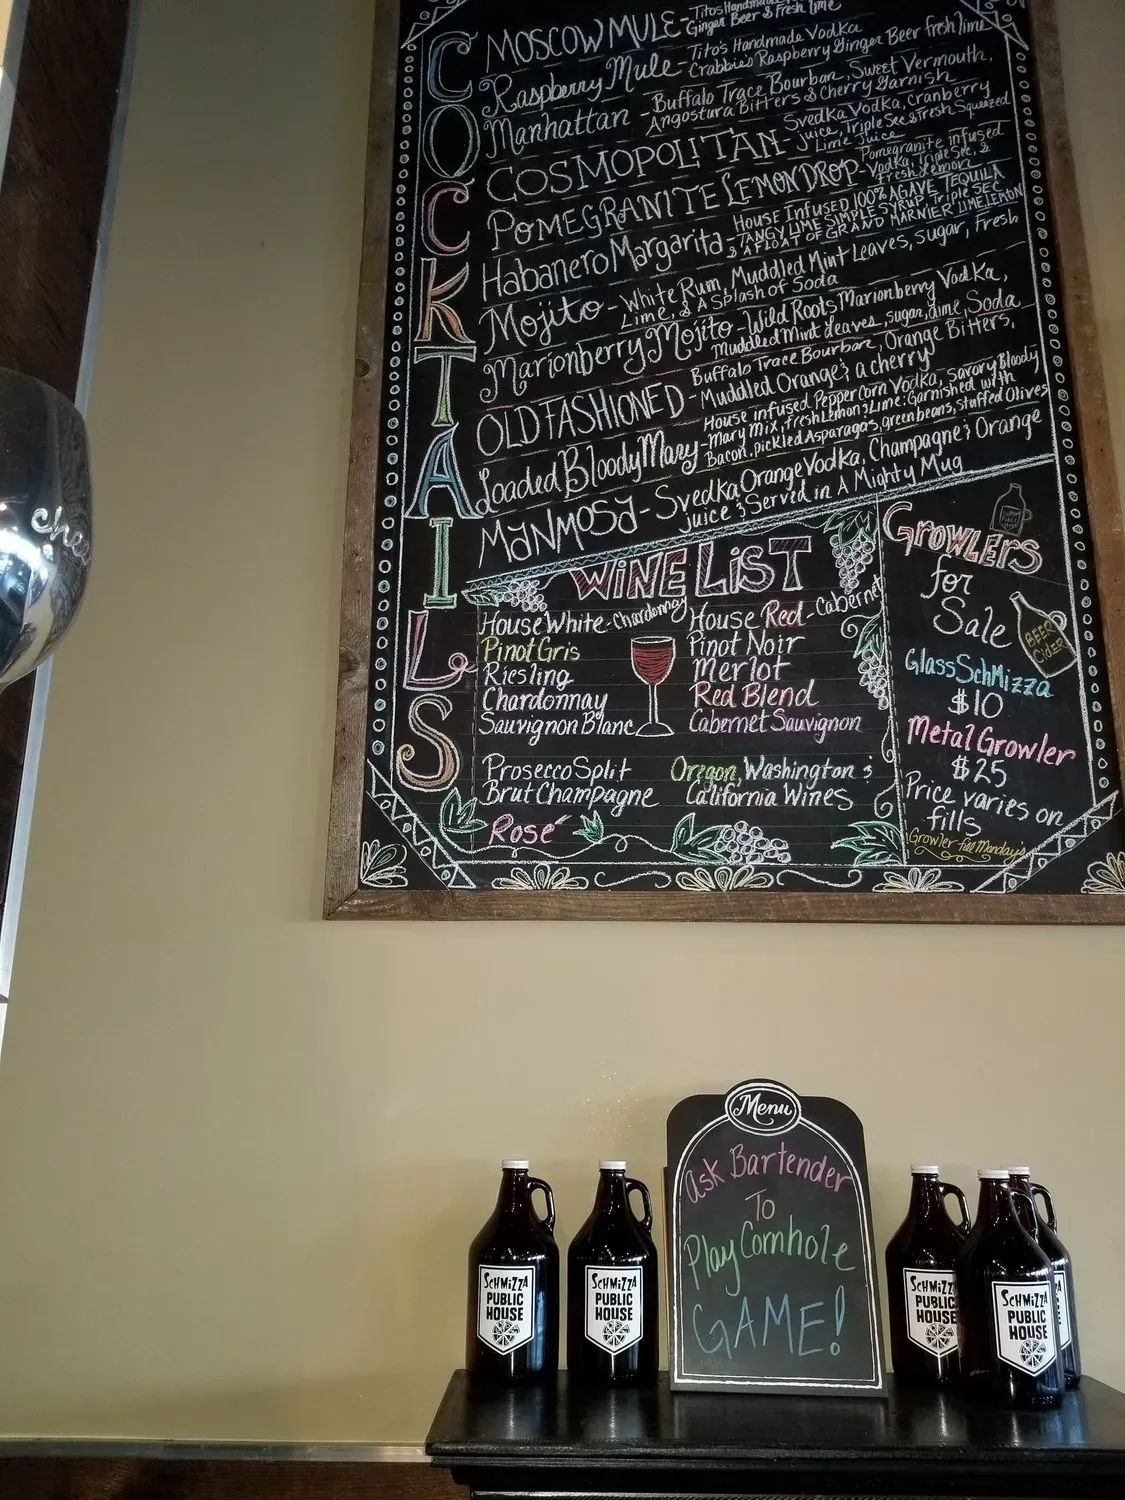 COCKTAILS
MOSCOW MULE - Titos Handmade
Ginger Beer & Fresh lime
Raspberry Mule - Tito's Handmade Vodka
Crabbie's Raspberry Ginger Beer fresh lime
Manhattan - Buffalo Trace Bourbon, Sweet Vermouth,
Angostura Bitters & Cherry Garnish
COSMOPOLITAN - Svedka Vodka, Cranberry
juice, Triple Sec & Fresh Squeezed
Lime Juice
POMEGRANITE LEMONDROP - Pomegranite infused
Vodka, Triple Sec, &
Fresh Lemon
Habanero Margarita - House Infused 100% AGAVE TEQUILA
TANGY LIME SIMPLE SYRUP, TRIPLE SEC
& A FLOAT OF GRAND MARNIER LIME LEMON
Mojito - White Rum, Muddled Mint Leaves, sugar, Fresh
Lime, & A Splash of Soda
Marionberry Mojito - Wild Roots Marionberry Vodka,
Muddled Mint leaves, sugar, lime, Soda
OLD FASHIONED - Buffalo Trace Bourbon, Orange Bitters,
Muddled Orange & a cherry
Loaded Bloody Mary - House infused PepperCorn Vodka, savory Bloody
Mary Mix, fresh Lemon & Lime: Garnished with
Bacon, pickled Asparagas, greenbeans, stuffed Olives
MANMOSA - Svedka Orange Vodka, Champagne & Orange
juice & Served in A Mighty Mug
WINE LIST
House White - Chardonnay
Pinot Gris
Riesling
Chardonnay
Sauvignon Blanc
Prosecco Split
Brut Champagne
Rosé
House Red - Cabernet
Pinot Noir
Merlot
Red Blend
Cabernet Sauvignon
Oregon, Washington &
California Wines
GROWLERS
for
Sale
BEER
CIDER
Glass SchMizza
$10
Metal Growler
$25
Price varies on
fills
Growler fill Monday's
Menu
Ask Bartender
To
Play Cornhole
GAME!
SCHMIZZA
PUBLIC
HOUSE
SCHMIZZA
PUBLIC
HOUSE
SCHMIZZA
PUBLIC
HOUSE
SCHMIZZA
PUBLIC
HOUSE